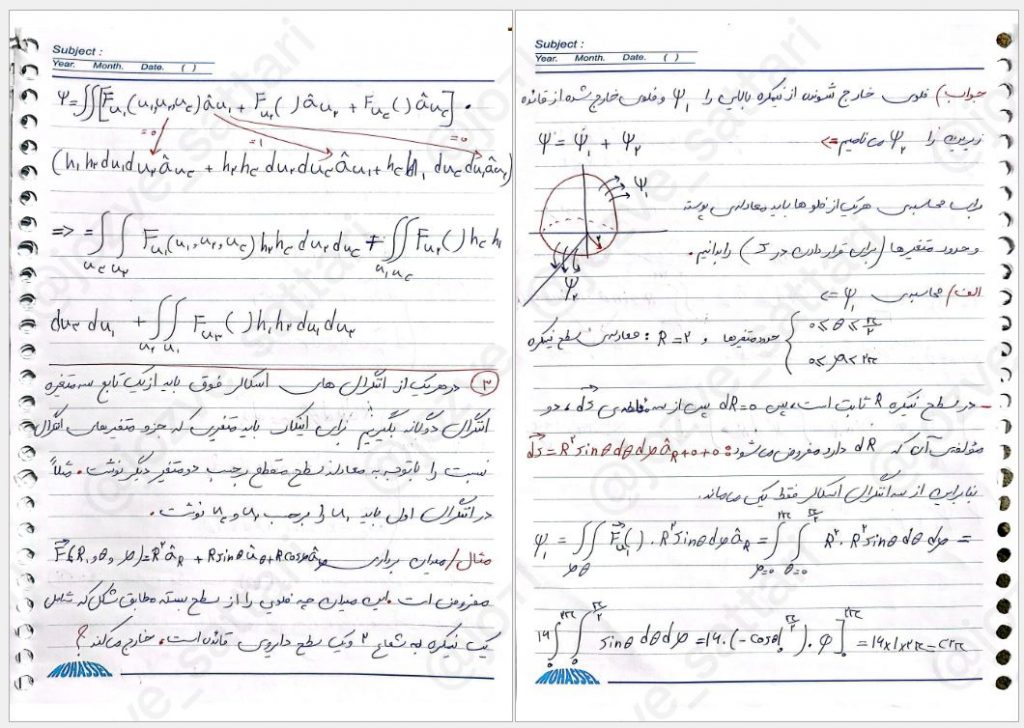 Subject :
Year. Month. Date. ( )
Ψ = ∬[F̄u₁(u₁,u₂,u₃)âu₁ + Fu₂( )âu₂ + Fu₃( )âu₃] .
=0 =1 =0
(h₁h₂du₁du₂âu₃ + h₂h₃du₂du₃âu₁ + h₃h₁ du₃du₁âu₂)
=> = ∬ Fu₁(u₁,u₂,u₃)h₂h₃du₂du₃ + ∬ Fu₂( )h₃h₁
u₃u₂ u₁u₃
du₃du₁ + ∬ Fu₃( )h₁h₂du₁du₂
u₂ u₁
③ در هر یک از انتگرال های اسکالر فوق باید از یک تابع سه متغیره
انتگرال دوگانه بگیریم برای اینکار باید متغیری که جزو متغیرهای انتگرال
نیست را با توجه به معادله سطح مقطع برحسب دو متغیر دیگر نوشت. مثلاً
در انتگرال اول باید u₁ را برحسب u₂ و u₃ نوشت.
مثال/ میدان برداری F̄(R,θ,φ)=R²âR + Rsinθâθ+Rcosφâφ
مفروض است. این میدان چه فلوی را از سطح بسته مطابق شکل که شامل
یک نیمکره به شعاع ۲ و یک سطح دایروی قائده است، خارج می‌کند؟
MOHASSEL
Subject :
Year. Month. Date. ( )
جواب/ فلوی خارج شونده از نیمکره بالایی را Ψ₁ و فلوی خارج شده از قائده
زیرین را Ψ₂ می نامیم => Ψ = Ψ₁ + Ψ₂
Ψ₁
برای محاسبه‌ی هر یک از فلوها باید معادله‌ی پوسته
۲
و حدود متغیرها (برای قرار دادن در ∫) را بدانیم.
Ψ₂
الف/ محاسبه‌ی Ψ₁ <=
معادله‌ی سطح نیمکره : R=۲ و حدود متغیرها { ۰≤θ≤π/۲
۰≤φ≤۲π
در سطح نیمکره R ثابت است، پس dR=۰ پس از سه مؤلفه‌ی ds̄، دو
مؤلفه‌ی آن که dR دارد صفر می‌شود: ds̄=R²sinθdθdφâR+۰+۰
بنابراین از سه انتگرال اسکالر فقط یکی می‌ماند.
Ψ₁ = ∬ F̄u₁( ) . R²sinθdφâR = ∫ ∫ R².R²sinθdθdφ =
φθ φ=۰ θ=۰ ۲π π/۲
۱۶∫∫ sinθdθdφ = ۱۶.(-cosθ|).φ] = ۱۶×۱×۲π = ۳۲π
MOHASSEL